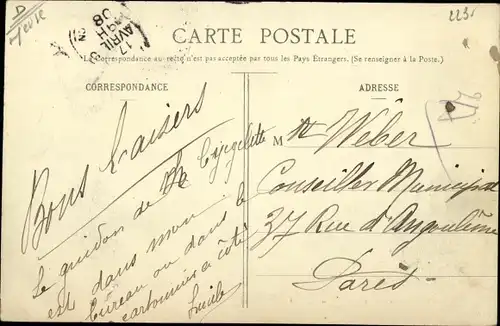 Meuse
17
AVRIL
08
2231
CARTE POSTALE
La Correspondance au recto n'est pas acceptée par tous les Pays Etrangers. (Se renseigner à la Poste.)
CORRESPONDANCE
ADRESSE
Bons baisers
Le guidon de la bicyclette
est dans mon
bureau ou dans le
cartonnier à côté
Lucile
M
Wéber
Conseiller Municipal
37 Rue d'Angoulême
Paris